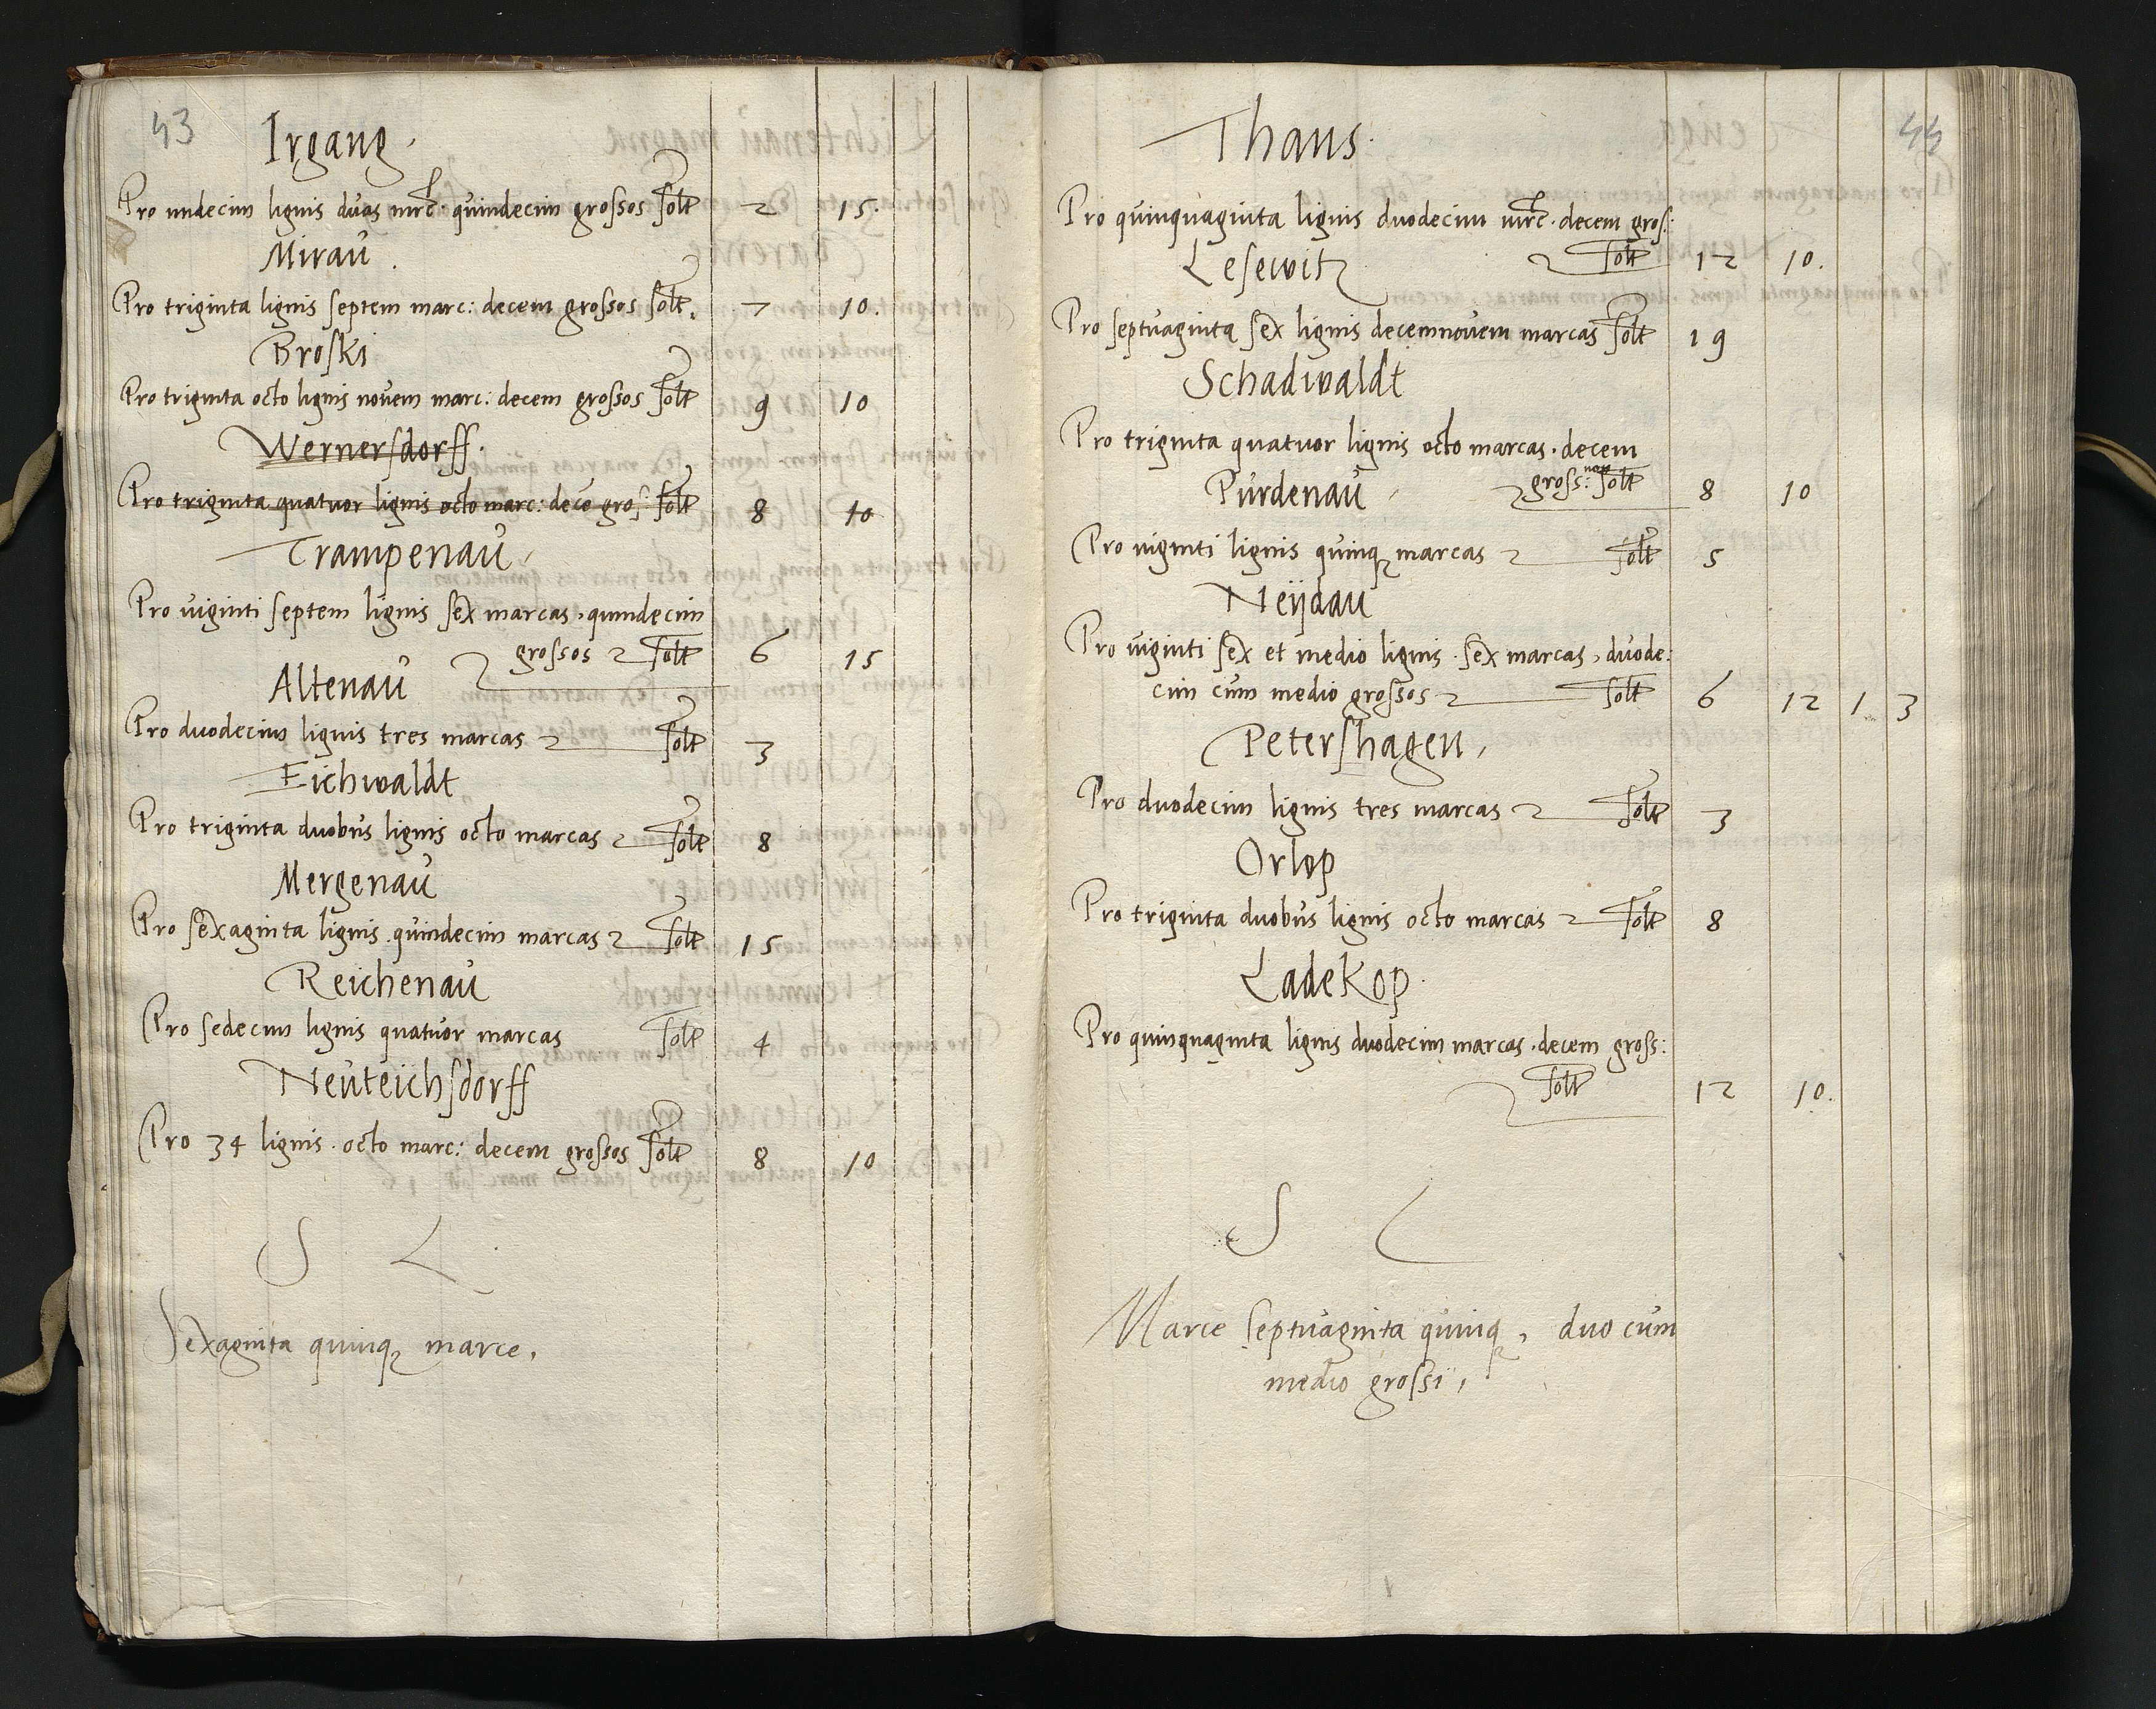 43
Irgang.
Pro undecim lignis duas mrc. quindecim grossos solt 2 15.
Mirau.
Pro triginta lignis septem marc: decem grossos solt. 7 10.
Broski
Pro triginta octo lignis novem marc: decem grossos solt 9 10
Wernersdorff.
Pro triginta quatuor lignis octo marc: dece gros: solt 8 10
Trampenau
Pro viginti septem lignis sex marcas, quindecim
grossos solt 6 15
Altenau
Pro duodecim lignis tres marcas solt 3
Eichwaldt
Pro triginta duobus lignis octo marcas solt 8
Mergenau
Pro sexaginta lignis quindecim marcas solt 15
Reichenau
Pro sedecim lignis quatuor marcas solt 4
Neuteichsdorff
Pro 34 lignis octo marc: decem grossos solt 8 10
S L
Sexaginta quinq marce,
44
Thans.
Pro quinquaginta lignis duodecim mrc. decem gros:
solt 12 10.
Lesewitz
Pro septuaginta sex lignis decemnovem marcas solt 19
Schadwaldt
Pro triginta quatuor lignis octo marcas. decem
gross: non solt 8 10
Purdenau
Pro viginti lignis quinq marcas solt 5
Neijdau
Pro viginti sex et medio lignis sex marcas, duode:
cim cum medio grossos solt 6 12 1 3
Petershagen,
Pro duodecim lignis tres marcas solt 3
Orlop
Pro triginta duobus lignis octo marcas solt 8
Ladekop.
Pro quinquaginta lignis duodecim marcas. decem gross:
solt 12 10.
S L
Marce septuaginta quinq, duo cum
medio grossi,